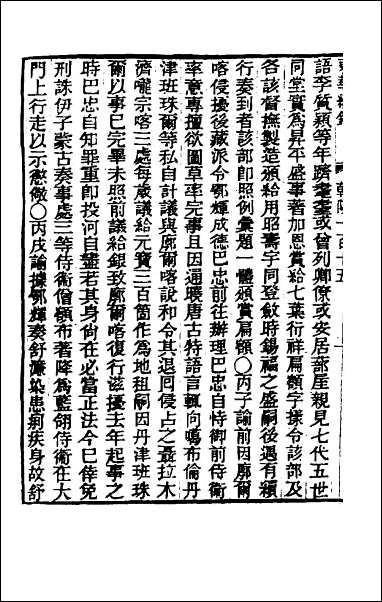 語李質穎等年躋耄耋或曾列卿僚或安居蔀屋親見七代五世
同堂實為昇平盛事著加恩賞給七葉衍祥扁額字樣令該部及
各該督撫製造頒給用昭壽字同登斂時錫福之盛嗣後遇有續
行奏到者該部即照例彙題一體頒賞扁額〇丙子諭前因廓爾
喀侵擾後藏派令鄂輝成德巴忠前往辦理巴忠自恃御前侍衛
率意專擅欲圖草率完事且因通曉唐古特語言輒向噶布倫丹
津班珠爾等私自計議與廓爾喀說和令其退回侵占之聶拉木
濟嚨宗喀三處每歲議給元寶三百箇作為地租嗣因丹津班珠
爾以事已完畢未照前議給銀致廓爾喀復行滋擾去年起事之
時巴忠自知罪重即投河自盡若其身尚在必當正法今已倖免
刑誅伊子蒙古奏事處三等侍衛僧額布著降為藍翎侍衛在大
門上行走以示懲儆〇丙戌諭據鄂輝奏舒濂染患痢疾身故舒